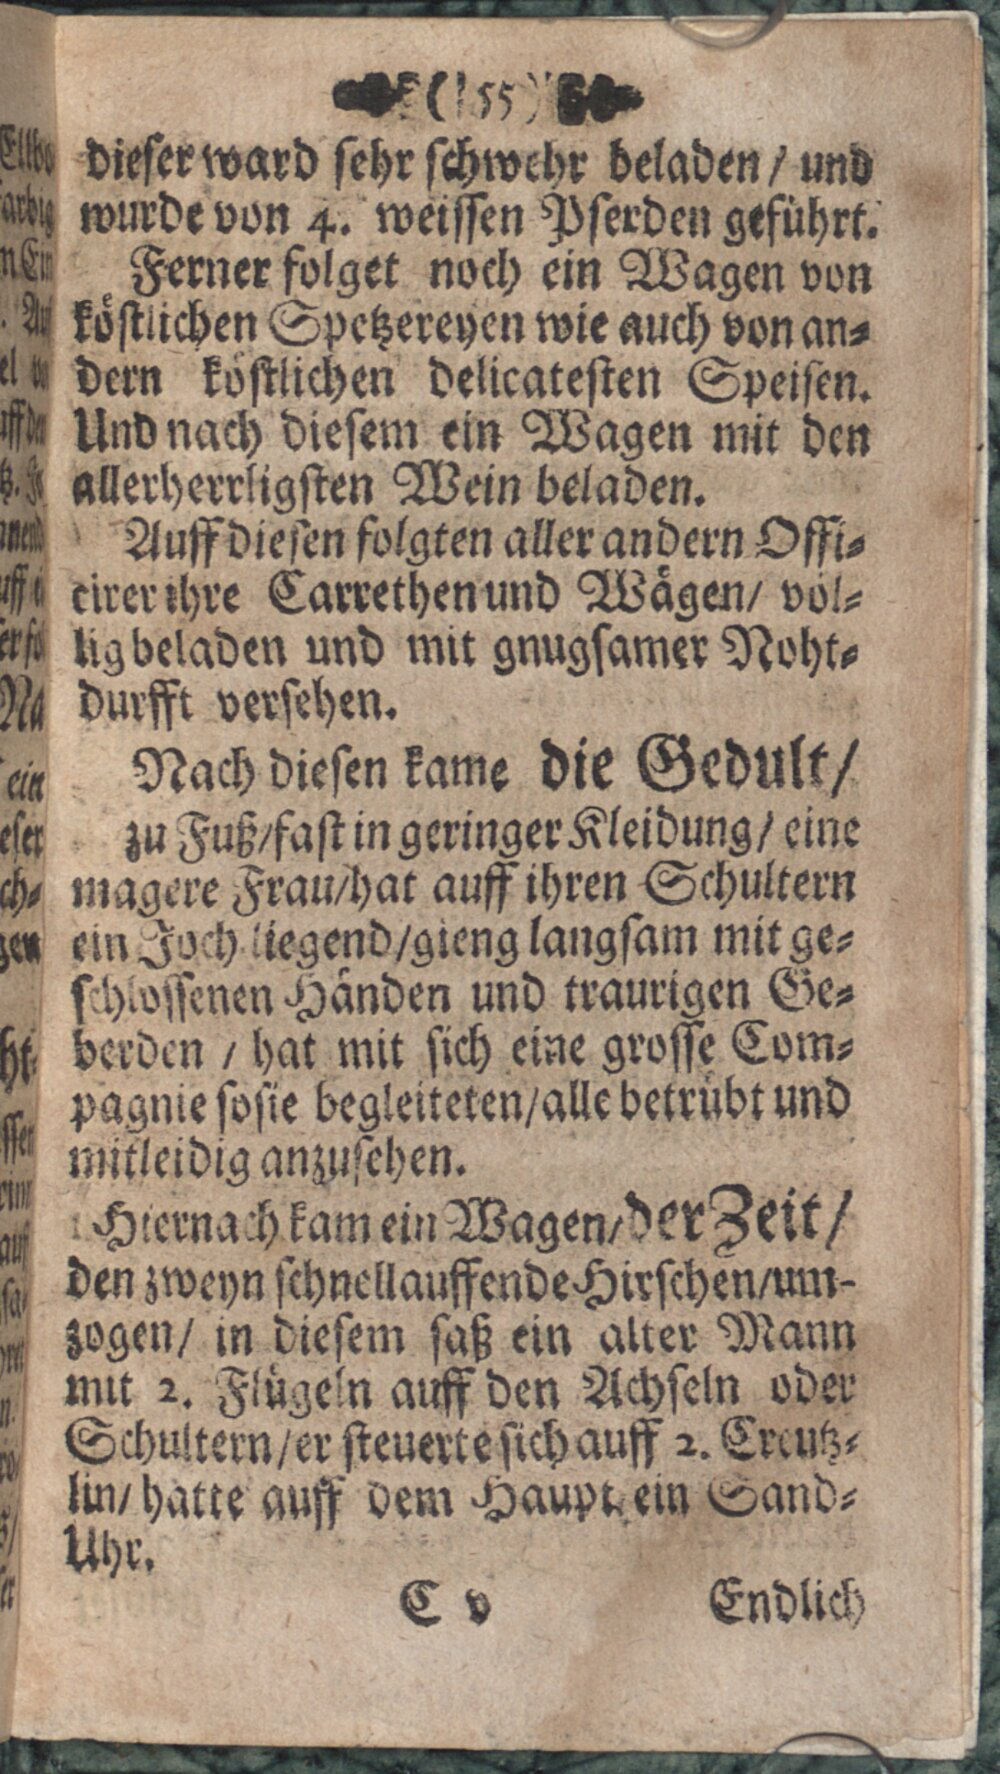 (55)
dieser ward sehr schwehr beladen / und
wurde von 4. weissen Pferden geführt.
Ferner folget noch ein Wagen von
köstlichen Spetzereyen wie auch von an-
dern köstlichen delicatesten Speisen.
Und nach diesem ein Wagen mit den
allerherrligsten Wein beladen.
Auff diesen folgten aller andern Offi-
cirer ihre Carrethen und Wägen / völ-
lig beladen und mit gnugsamer Noht-
durfft versehen.
Nach diesen kame die Gedult /
zu Fuß / fast in geringer Kleidung / eine
magere Frau / hat auff ihren Schultern
ein Joch liegend / gieng langsam mit ge-
schlossenen Händen und traurigen Ge-
berden / hat mit sich eine grosse Com-
pagnie so sie begleiteten / alle betrübt und
mitleidig anzusehen.
Hiernach kam ein Wagen / der Zeit /
den zweyn schnellauffende Hirschen / um-
zogen / in diesem saß ein alter Mann
mit 2. Flügeln auff den Achseln oder
Schultern / er steuerte sich auff 2. Creutz-
lin / hatte auff dem Haupt ein Sand-
Uhr.
C v Endlich